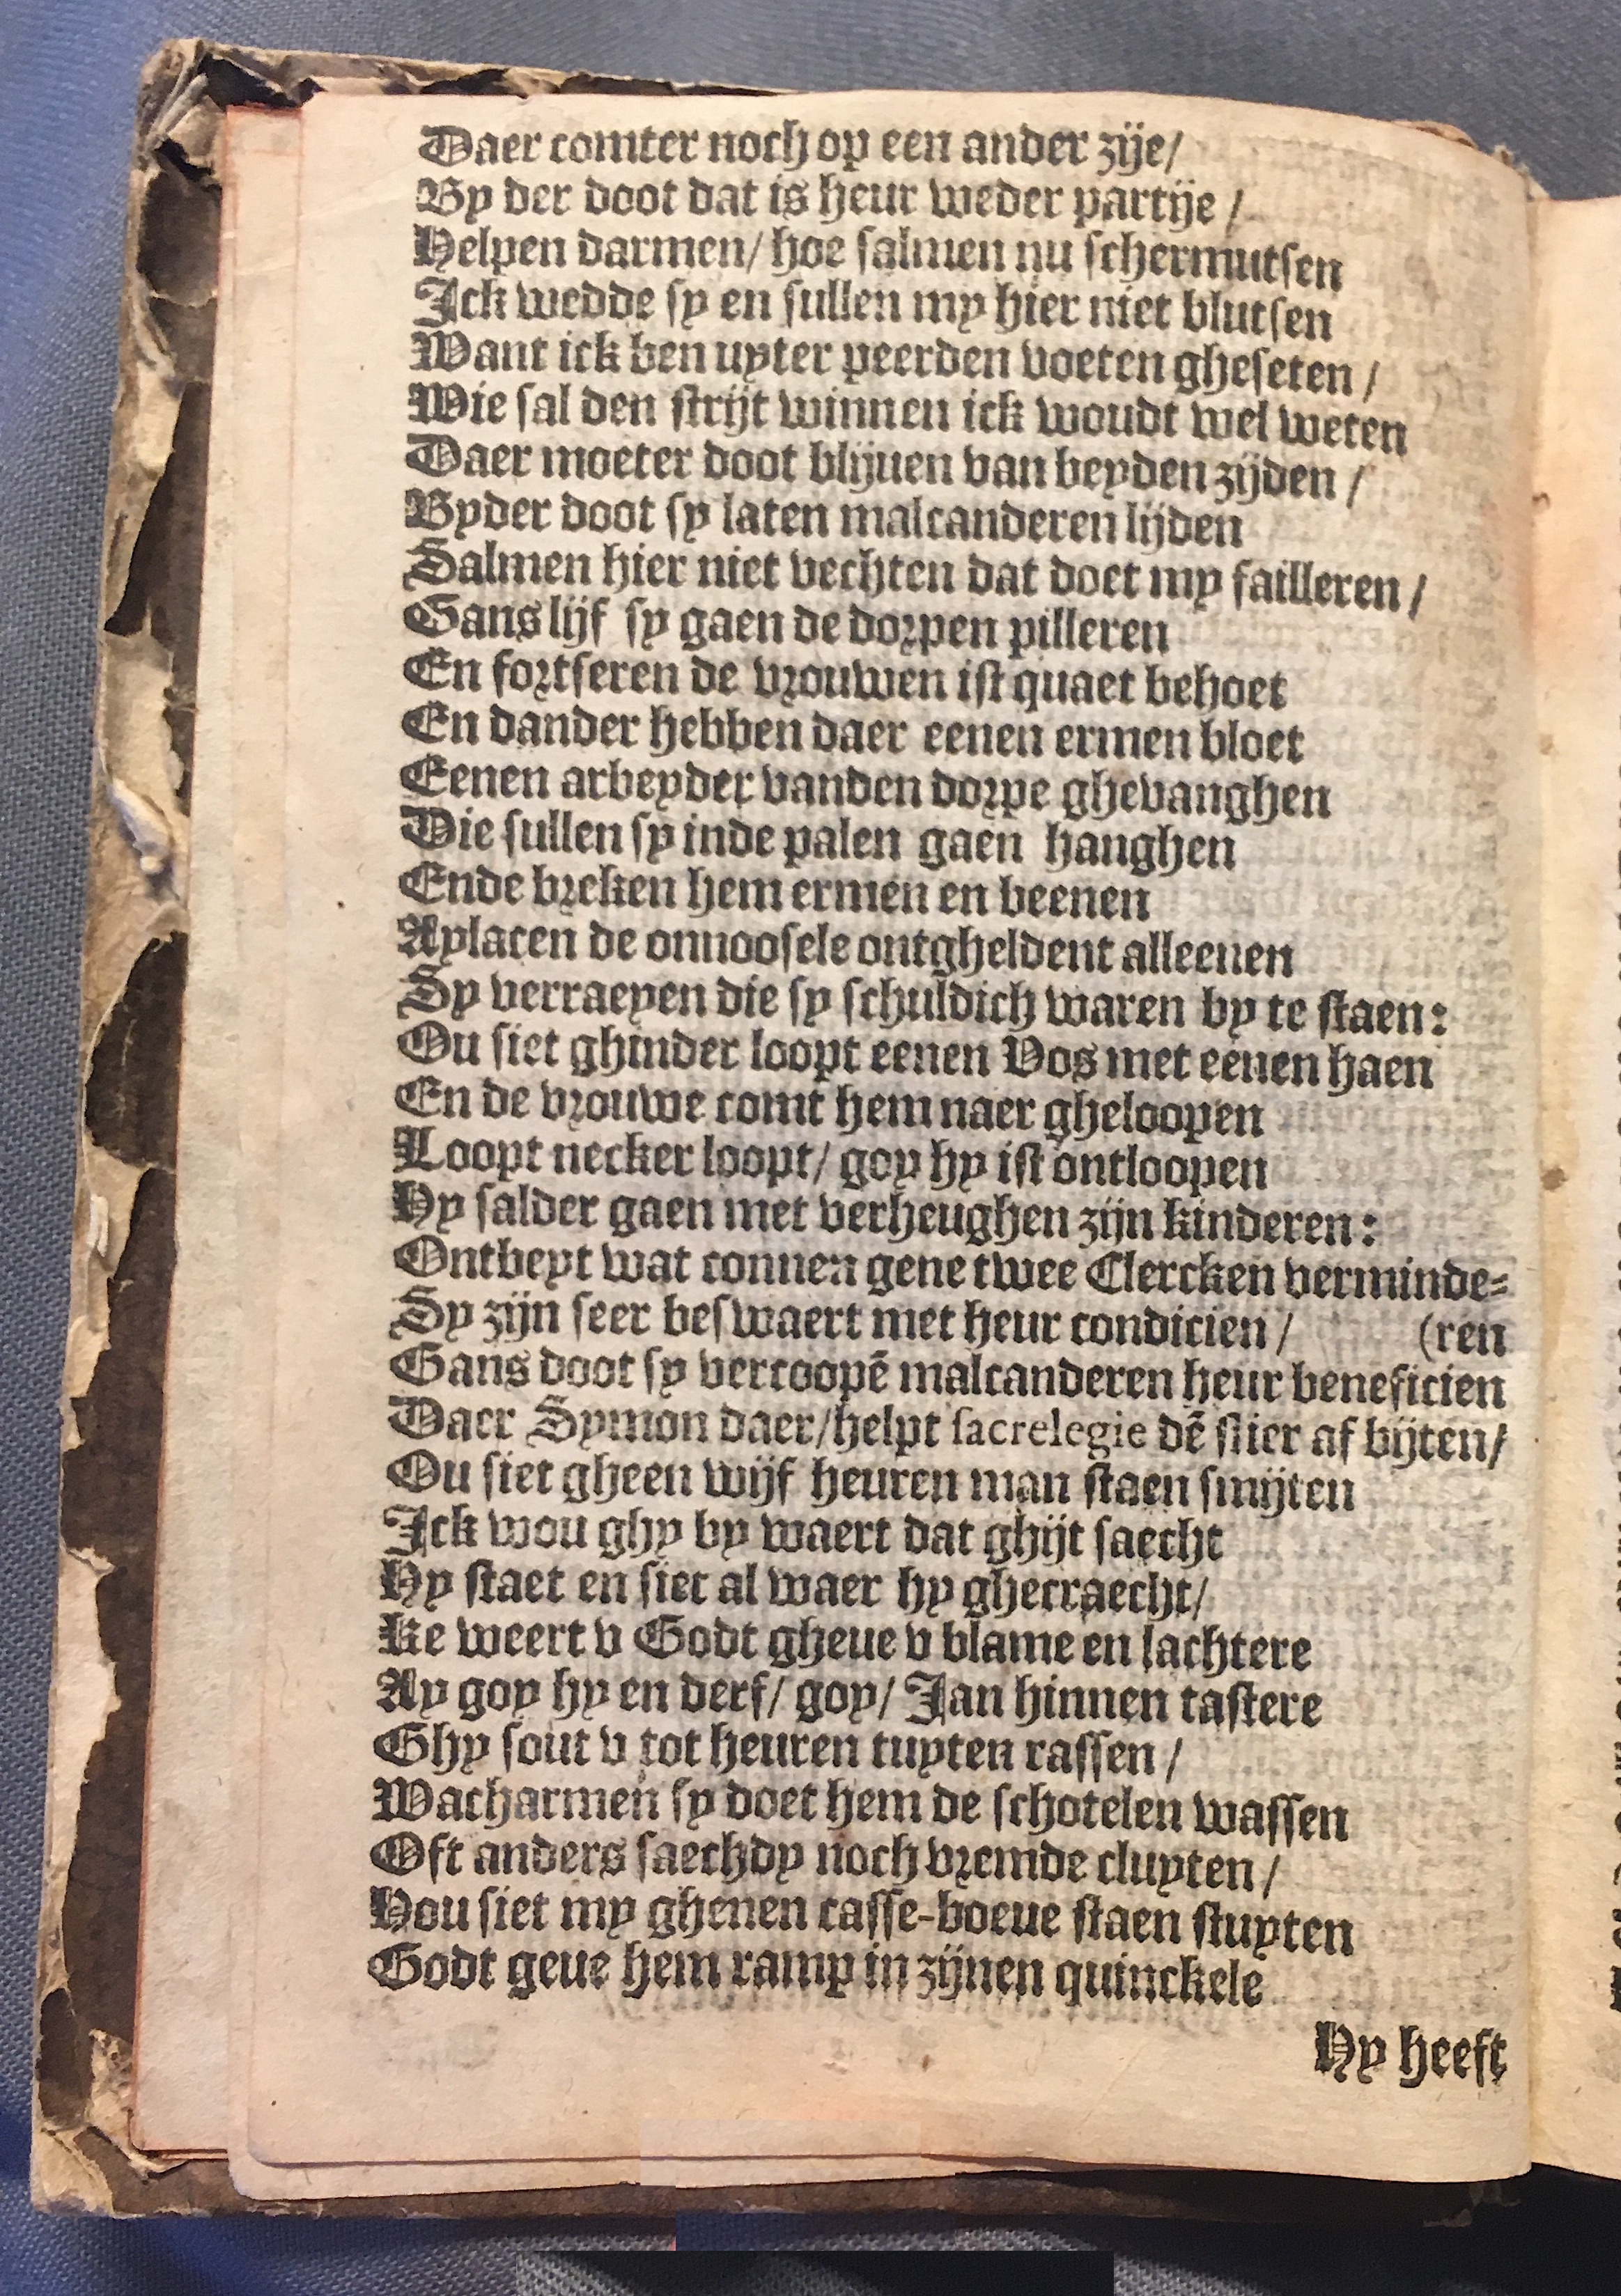 Daer comter noch op een ander zije/
By der doot dat is heur weder partije /
Helpen darmen/ hoe salmen nu schermutsen
Ick wedde sy en sullen my hier niet blutsen
Want ick ben uyter peerden voeten gheseten /
Wie sal den strijt winnen ick woudt wel weten
Daer moeter doot blijuen van beyden zijden /
Byder doot sy laten malcanderen lijden
Salmen hier niet vechten dat doet my failleren /
Gans lijf sy gaen de dorpen pilleren
En fortseren de vrouwen ist quaet behoet
En dander hebben daer eenen ermen bloet
Eenen arbeyder vanden dorpe ghevanghen
Die sullen sy inde palen gaen hanghen
Ende breken hem ermen en beenen
Aylacen de onnoosele ontgheldent alleenen
Sy verraeyen die sy schuldich waren by te staen:
Ou siet ghinder loopt eenen Vos met eenen haen
En de vrouwe comt hem naer gheloopen
Loopt necker loopt/ goy hy ist ontloopen
Hy salder gaen met verheughen zijn kinderen:
Ontbeyt wat connen gene twee Clercken verminde-
Sy zijn seer beswaert met heur condicien / (ren
Gans doot sy vercoopē malcanderen heur beneficien
Daer Symon daer/helpt sacrelegie dē stier af bijten/
Ou siet gheen wijf heuren man staen smijten
Ick wou ghy by waert dat ghijt saecht
Hy staet en siet al waer hy ghecraecht/
Ke weert v Godt gheue v blame en lachtere
Ay goy hy en derf/ goy/ Jan hinnen tastere
Ghy sout v tot heuren tuyten rassen /
Wacharmen sy doet hem de schotelen wassen
Oft anders saechdy noch vremde cluyten /
Hou siet my ghenen casse-boeue staen stuyten
Godt geue hem ramp in zijnen quinckele
Hy heeft